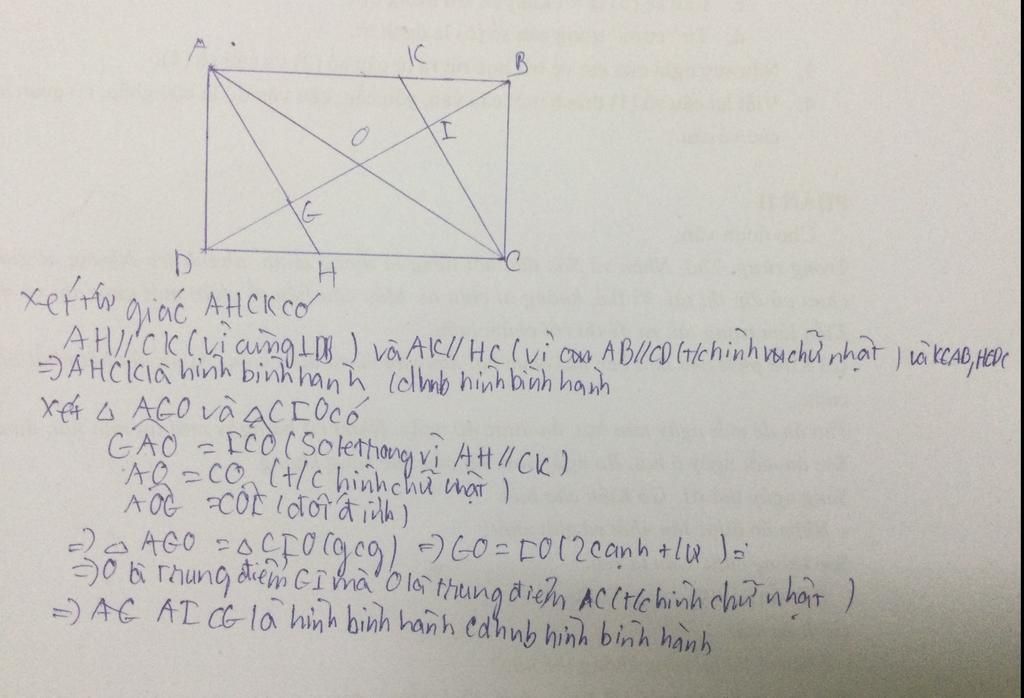 A K B
O I
G
D H C
xét tứ giác AHCK có
AH//CK (vì cùng ⊥DB) và AK//HC (vì AB//CD (t/c hình chữ nhật) và K∈AB, H∈DC
=> AHCK là hình bình hành (dhnb hình bình hành
xét △ AGO và △CIO có
GAO = ICO (So le trong vì AH//CK)
AO = CO (t/c hình chữ nhật)
AOG = COI (đối đỉnh)
=> △ AGO = △CIO (gcg) => GO = IO (2 cạnh t/ư) =
=> O là trung điểm GI mà O là trung điểm AC (t/c hình chữ nhật)
=> AG AICG là hình bình hành (dhnb hình bình hành